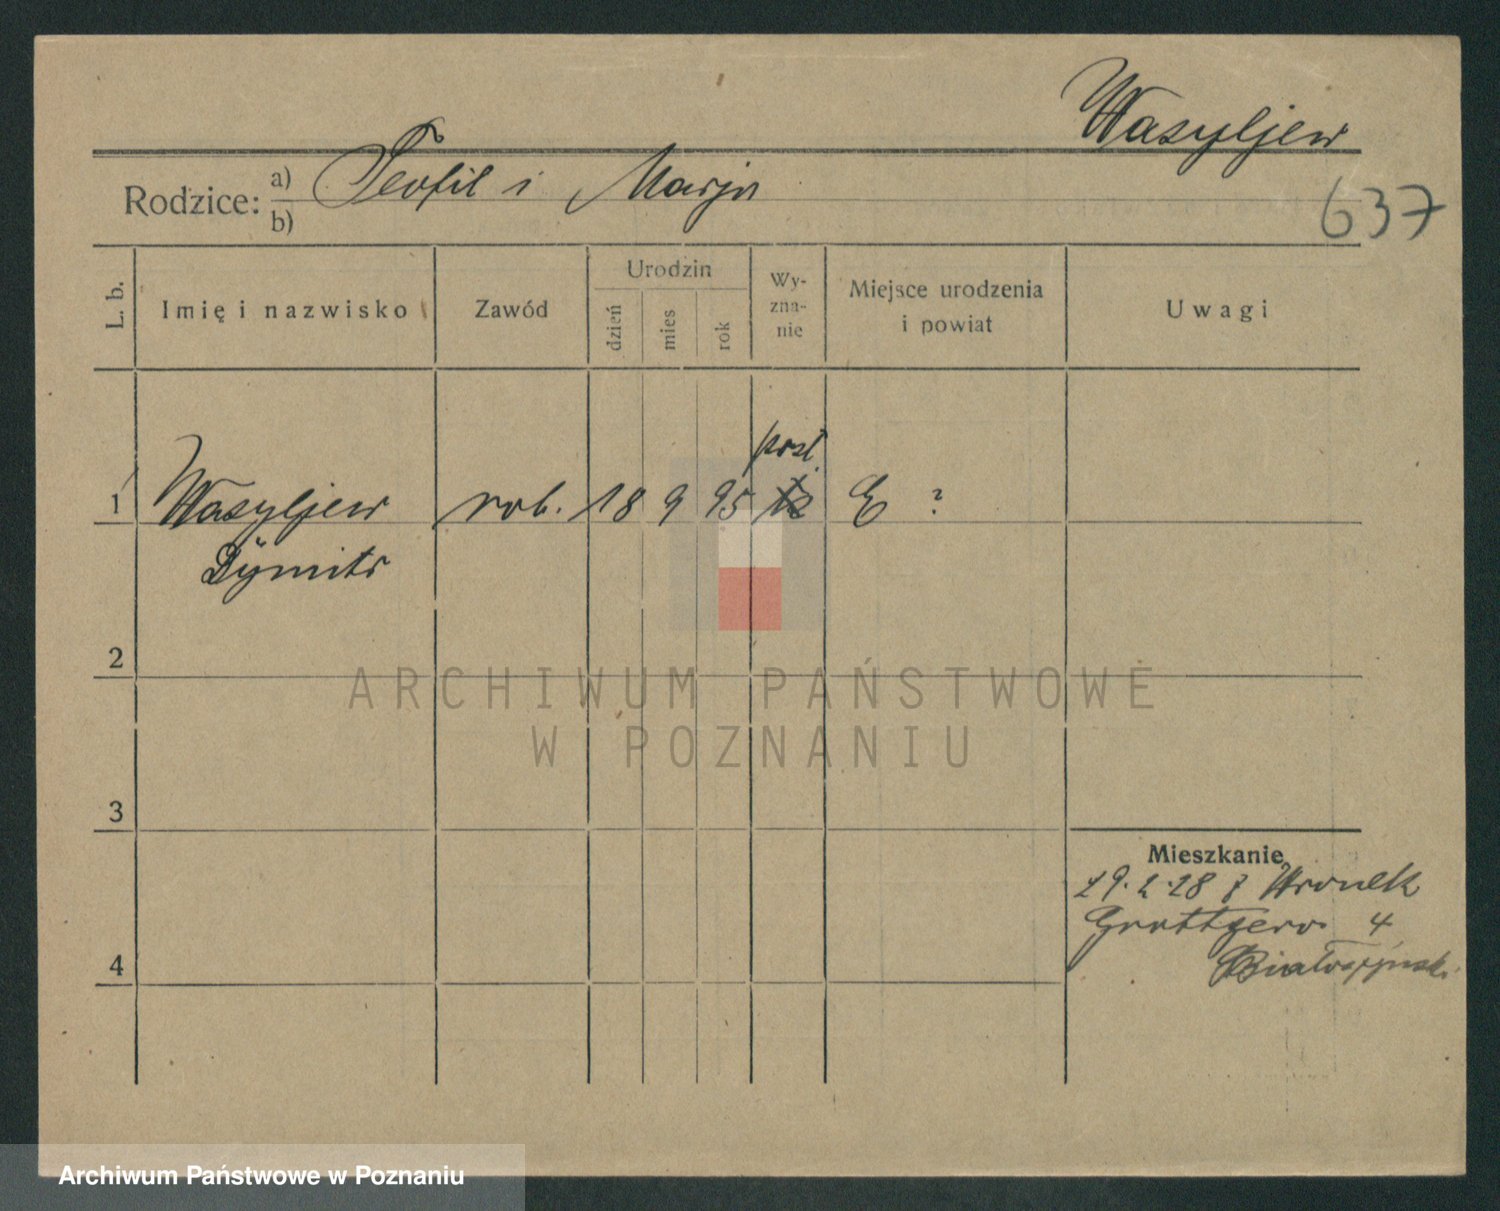 Wasyljew
Rodzice: a) Teofil i Marja
b)
637
L. b.
Imię i nazwisko
Zawód
Urodzin
dzień
mies
rok
Wy-
zna-
nie
Miejsce urodzenia
i powiat
Uwagi
prst.
1 Wasyljew rob. 18 9 95 E ?
Dymitr
2
3
4
Mieszkanie
29.2.28 z Wronek
Grottgera 4
Białoszyński
ARCHIWUM PAŃSTWOWE
W POZNANIU
Archiwum Państwowe w Poznaniu